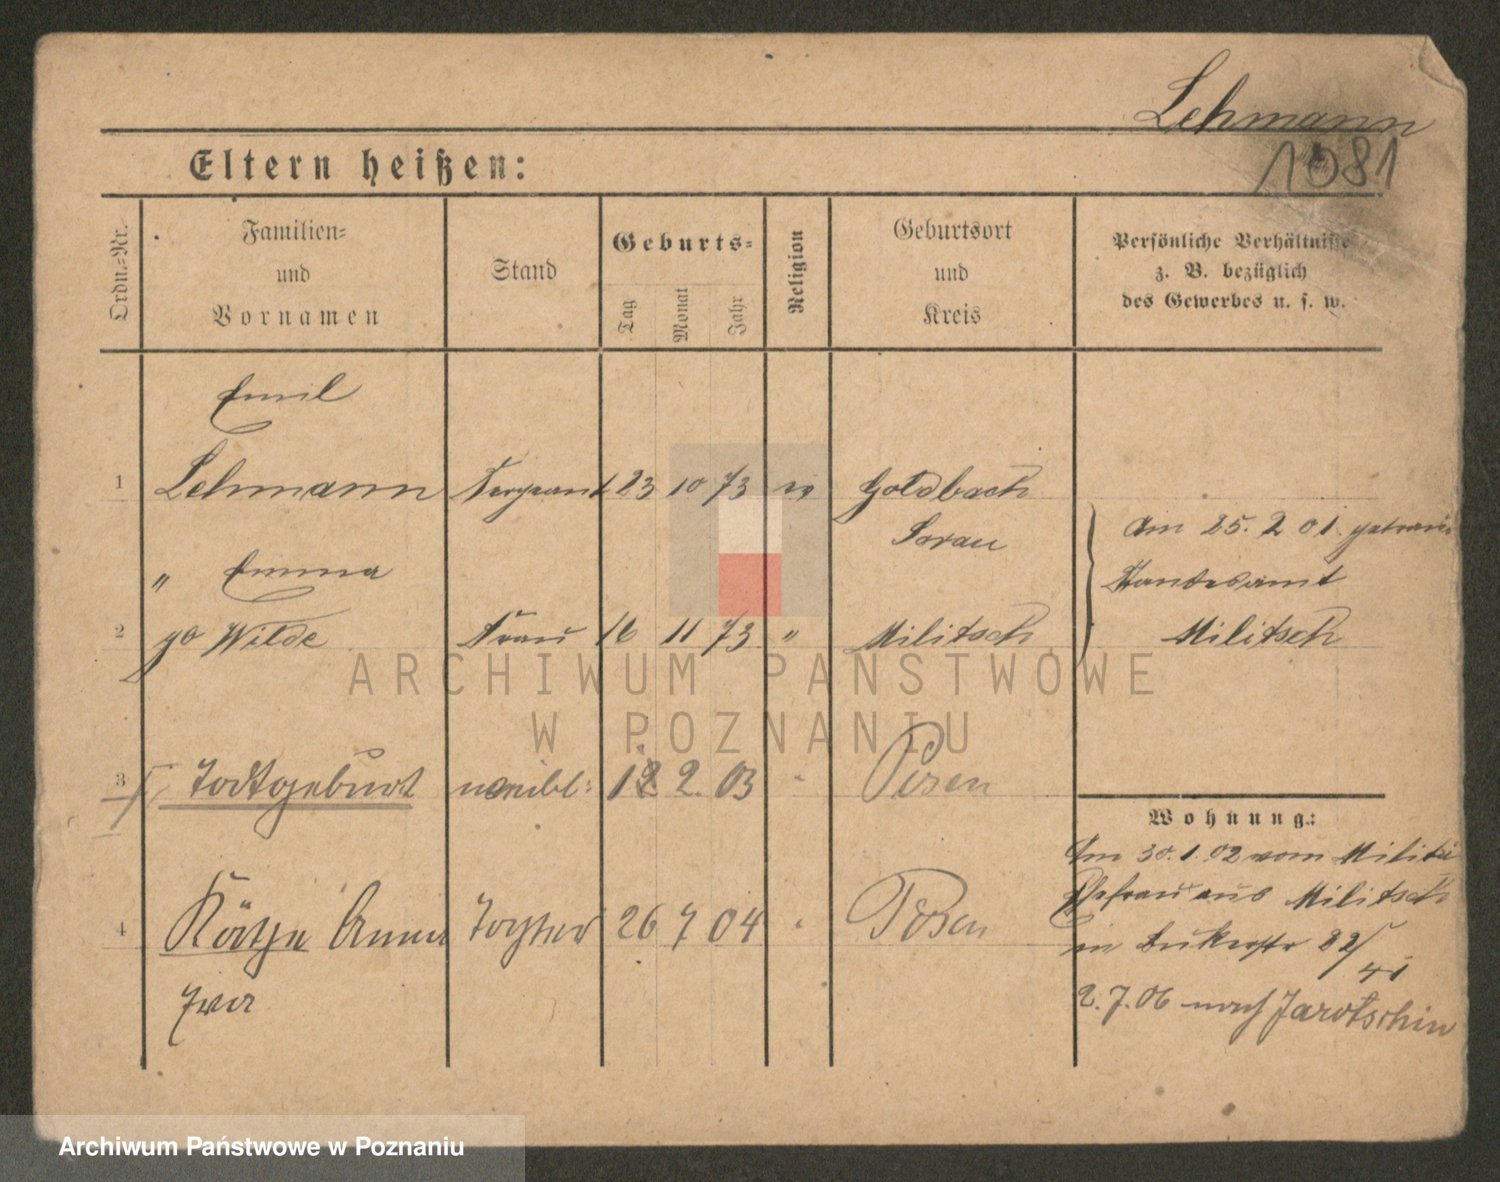 Lehmann
1081
Eltern heißen:
Ordn.-Nr.
Familien-
und
Vornamen
Stand
Geburts-
Tag
Monat
Jahr
Religion
Geburtsort
und
Kreis
Persönliche Verhältnisse
z. B. bezüglich
des Gewerbes u. s. w.
Emil
1 Lehmann Sergeant 23 10 73 ev Goldbach
Sorau
Am 25. 2 01. getraut
" Emma
Standesamt
2 Wilde Frau 16 11 73 " Militsch
Militsch
ARCHIWUM PAŃSTWOWE
W POZNANIU
3 Todtgeburt weibl: 12 2. 03 " Posen
Wohnung:
Am 30.1.02 vom Militär
Ehefrau aus Militsch
4 Käthe Anna Tochter 26 7 04 " Posen
in 22/
41
2.7.06 nach Jarotschin
Archiwum Państwowe w Poznaniu